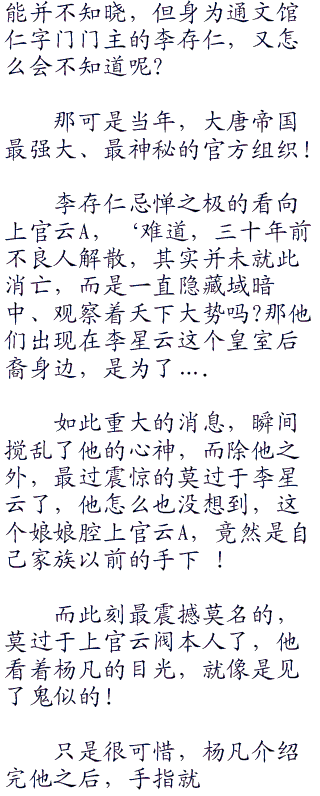 能并不知晓，但身为通文馆
仁字门门主的李存仁，又怎
么会不知道呢？
那可是当年，大唐帝国
最强大、最神秘的官方组织！
李存仁忌惮之极的看向
上官云A，‘难道，三十年前
不良人解散，其实并未就此
消亡，而是一直隐藏域暗
中、观察着天下大势吗？那他
们出现在李星云这个皇室后
裔身边，是为了….
如此重大的消息，瞬间
搅乱了他的心神，而除他之
外，最过震惊的莫过于李星
云了，他怎么也没想到，这
个娘娘腔上官云A，竟然是自
己家族以前的手下 ！
而此刻最震撼莫名的，
莫过于上官云阀本人了，他
看着杨凡的目光，就像是见
了鬼似的！
只是很可惜，杨凡介绍
完他之后，手指就